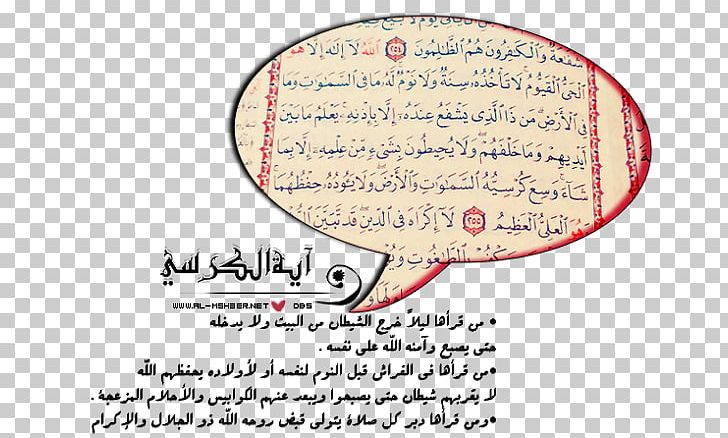 شَفَٰعَةٌ وَٱلْكَٰفِرُونَ هُمُ ٱلظَّٰلِمُونَ ٢٥٤ ٱللَّهُ لَآ إِلَٰهَ إِلَّا هُوَ
ٱلْحَىُّ ٱلْقَيُّومُ لَا تَأْخُذُهُۥ سِنَةٌ وَلَا نَوْمٌ لَّهُۥ مَا فِى ٱلسَّمَٰوَٰتِ وَمَا
فِى ٱلْأَرْضِ مَن ذَا ٱلَّذِى يَشْفَعُ عِندَهُۥٓ إِلَّا بِإِذْنِهِۦ يَعْلَمُ مَا بَيْنَ
أَيْدِيهِمْ وَمَا خَلْفَهُمْ وَلَا يُحِيطُونَ بِشَىْءٍ مِّنْ عِلْمِهِۦٓ إِلَّا بِمَا
شَآءَ وَسِعَ كُرْسِيُّهُ ٱلسَّمَٰوَٰتِ وَٱلْأَرْضَ وَلَا يَـُٔودُهُۥ حِفْظُهُمَا
ٱلْعَلِىُّ ٱلْعَظِيمُ ٢٥٥ لَآ إِكْرَاهَ فِى ٱلدِّينِ قَد تَّبَيَّنَ
بِٱلطَّٰغُوتِ
آية الكرسي
WWW.AL-MSHEER.NET DBS
• من قرأها ليلاً خرج الشيطان من البيت ولا يدخله
حتى يصبح وآمنه اللّه على نفسه .
•من قرأها فى الفراش قبل النوم لنفسه أو لأولاده يحفظهم اللّه
لا يقربهم شيطان حتى يصبحوا ويبعد عنهم الكوابيس والأحلام المزعجة .
•ومن قرأها دبر كل صلاة يتولى قبض روحه اللّه ذو الجلال والإكرام